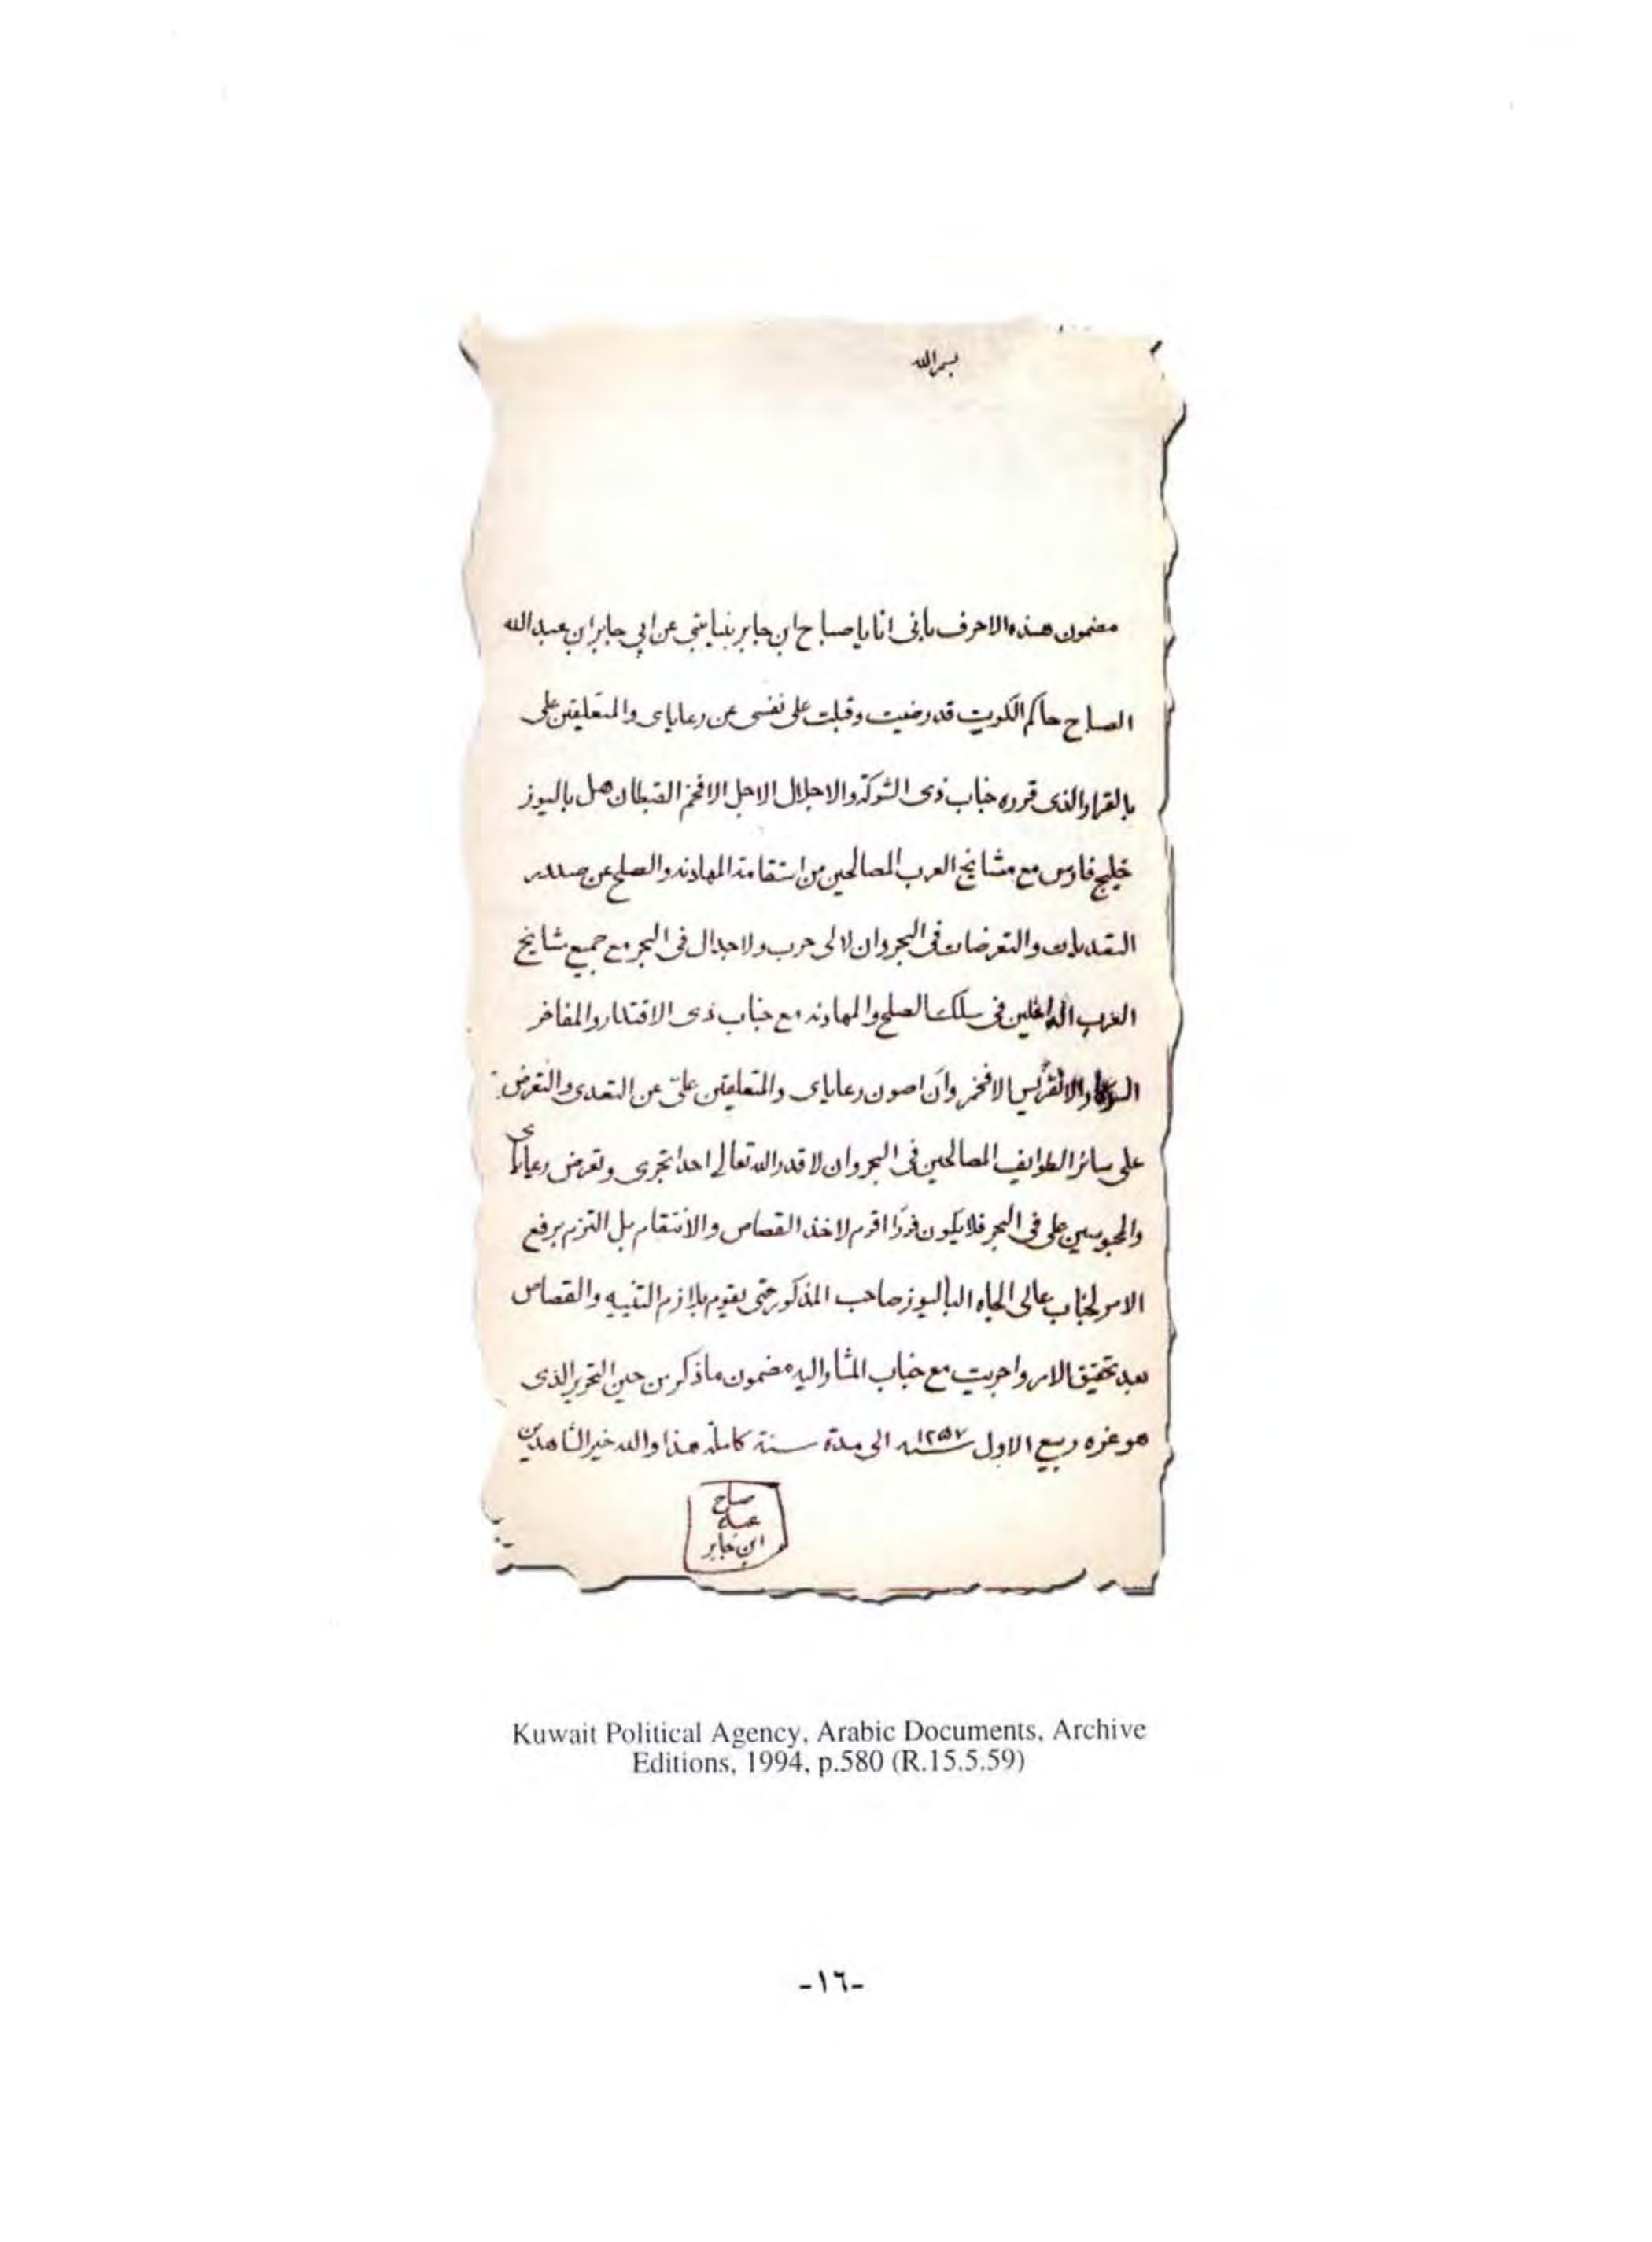 بسم الله
مضمون هذه الاحرف باني انا يا صباح ابن جابر بنيابتي عن ابي جابر ابن عبد الله
الصباح حاكم الكويت قد رضيت وقبلت على نفسى عن رعاياى والمتعلقين على
بالقرار الذى قرره جناب ذى الشوكة والاجلال الاجل الافخم القبطان هنل باليوز
خليج فارس مع مشايخ العرب المصالحين من استقامة المهادنه والصلح عن
التعديات والتعرضات فى البحر وان لا لى حرب ولا جدال فى البحر مع جميع مشايخ
العرب الداخلين فى سلك الصلح والمهادنه مع جناب ذى الاقتدار والمفاخر
السركار الانقريس الافخم وان اصون رعاياى والمتعلقين علىّ عن التعدى والتعرض
على سائر الطوايف المصالحين فى البحر وان لا قدر الله تعالى احدا تجرى وتعرض رعاياى
والمحبوسين على فى البحر فلا يكون فورًا اقوم لاخذ القصاص والانتقام بل التزم برفع
الامر لجناب عالى الجاه الباليوز صاحب المذكور حتى يقوم بلازم التنبيه والقصاص
بعد تحقيق الامر واجريت مع جناب المشار اليه مضمون ما ذكر من حين التحرير الذى
هو غره ربيع الاول سنه ١٢٥٧ الى مدة سنة كاملة هذا والله خير الشاهدين
صباح
عبده
ابن جابر
Kuwait Political Agency, Arabic Documents, Archive
Editions, 1994, p.580 (R.15.5.59)
-١٦-